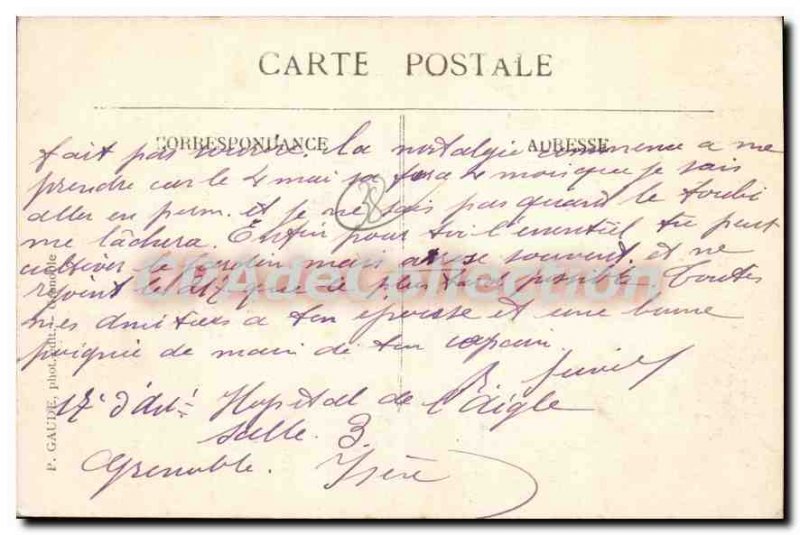 CARTE POSTALE
CORRESPONDANCE
ADRESSE
fait pas la nostalgie commence a me
prendre car le 4 mai sa fera 4 mois que je suis
aller en perm. et je ne sais pas quand le toubi
me lâchera. Enfin pour toi l'essentiel tu peut
cultiver le jardin mais souvent et ne
rejoint le que le plus tard possible. Toutes
mes amitiés a ton épouse et une bonne
poignée de main de ton copain.
Hopital de l'Aigle
Salle. 3.
Grenoble. Isère
38
CPAdeCollection
P. GAUDE, phot.-édit., Grenoble